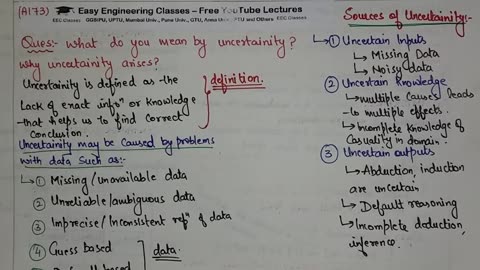 (AI73)
Easy Engineering Classes – Free YouTube Lectures
EEC Classes GGSIPU, UPTU, Mumbai Univ., Pune Univ., GTU, Anna Univ., PTU and Others EEC Classes
Ques:- What do you mean by uncertainity?
why uncertainity arises?
Uncertainity is defined as the
Lack of exact infoⁿ or knowledge
that helps us to find correct
Conclusion.
definition.
Uncertainity may be Caused by problems
with data Such as:-
① Missing/unavailable data
② Unreliable/ambiguous data
③ Imprecise/Inconsistent repⁿ of data
④ Guess based
data.
Sources of Uncertainity:-
① Uncertain Inputs
Missing Data
Noisy data
② Uncertain Knowledge
multiple Causes leads
to multiple effects.
Incomplete Knowledge of
Casuality in domain.
③ Uncertain outputs
Abduction, induction
are uncertain
Default reasoning
Incomplete deduction,
inference.